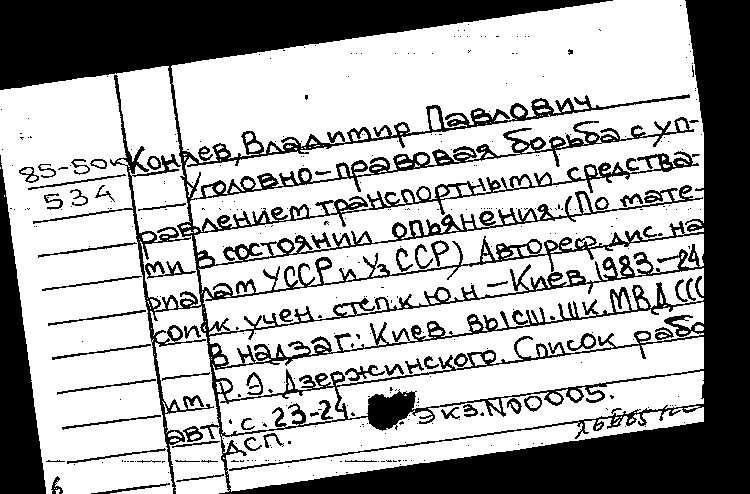 Коняев, Владимир Павлович.
85-50к
534
Уголовно-правовая борьба с уп-
равлением транспортными средства-
ми в состоянии опьянения: (По мате-
риалам УССР и УзССР) Автореф. дис. на
соиск. учен. степ. к.ю.н. - Киев, 1983. - 24
В надзаг.: Киев. высш. шк. МВД ССС
им. Ф. Э. Дзержинского. Список рабо
авт.: с. 23-24. Экз. N00005.
ДСП.
6